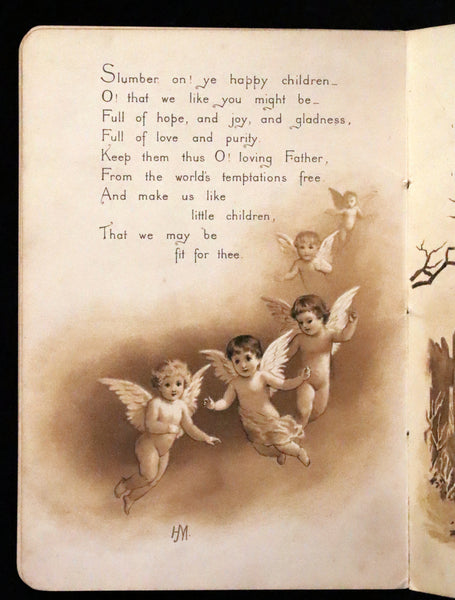 Slumber on! ye happy children_
O! that we like you might be_
Full of hope, and joy, and gladness,
Full of love and purity.
Keep them thus O! loving Father,
From the world's temptations free.
And make us like
little children,
That we may be
fit for thee.
HJM.